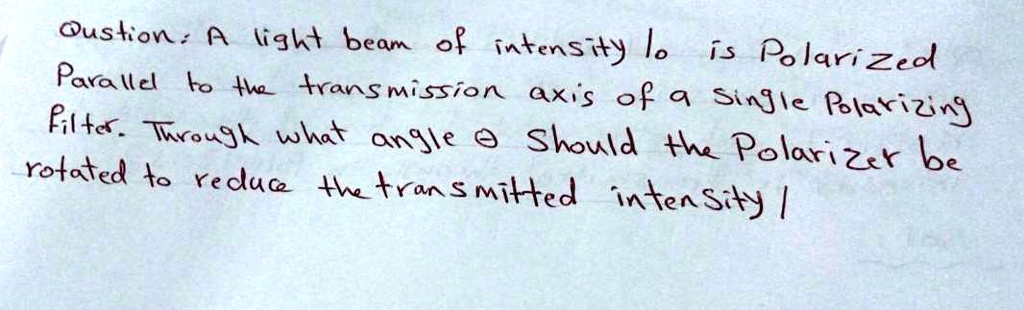 Qustion: A light beam of intensity lo is Polarized
Parallel to the transmission axis of a Single Polarizing
filter. Through what angle θ Should the Polarizer be
rotated to reduce the transmitted intensity I